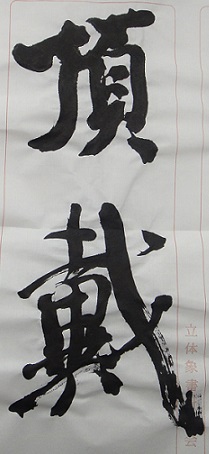 頂戴
立体象書